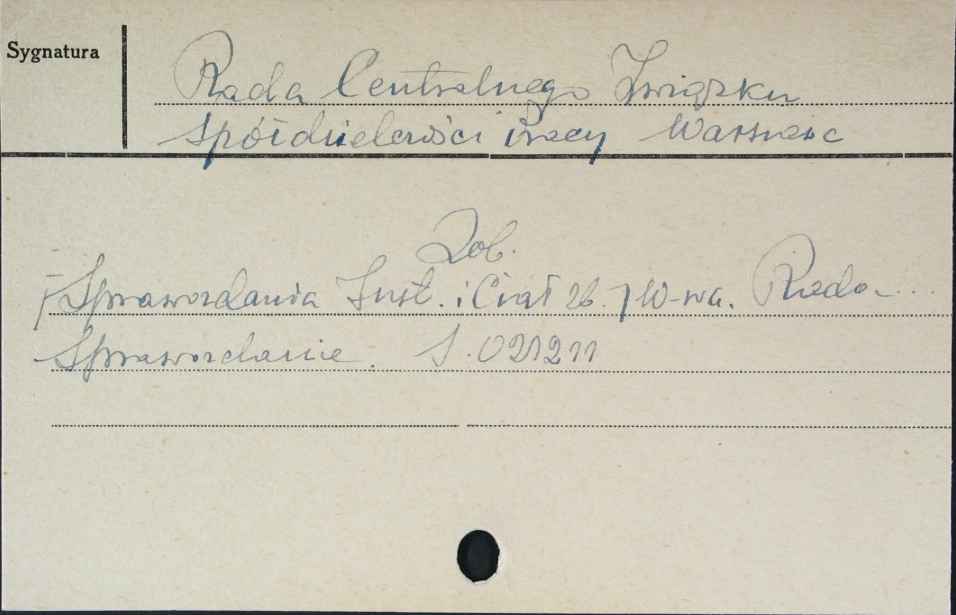 Sygnatura
Rada Centralnego Związku
Spółdzielczości Pracy Warszawa
Zob.
[Sprawozdania Inst. i Ciał zb.] W-wa. Rada...
Sprawozdanie. S.021211